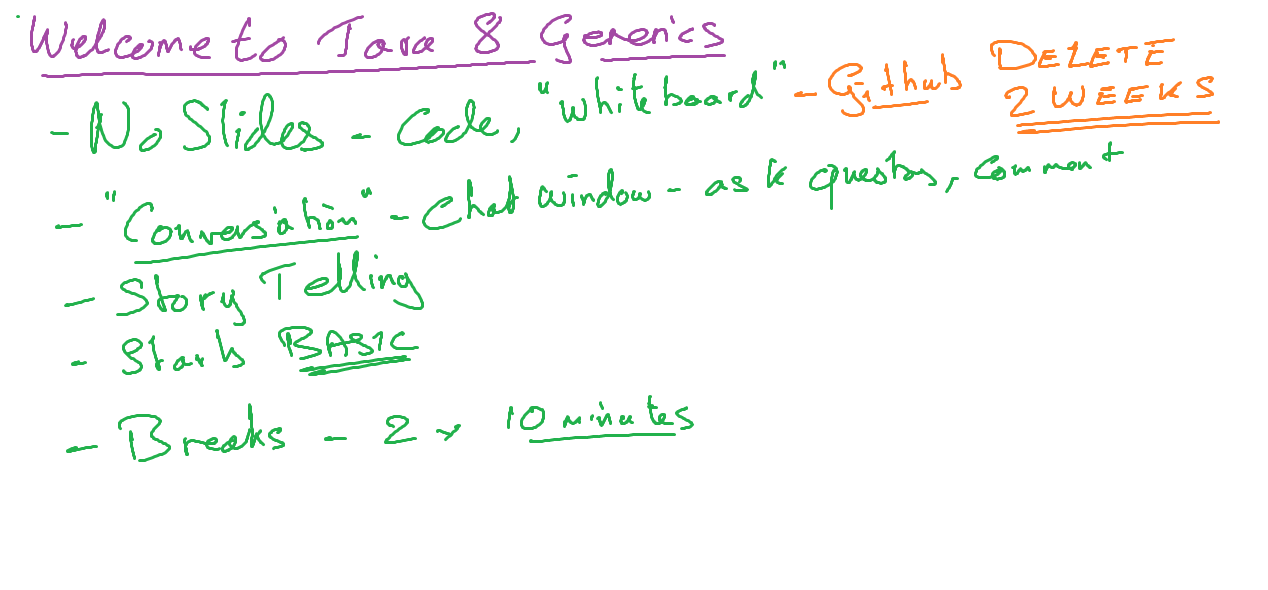 Welcome to Java 8 Generics
- No Slides - Code, "whiteboard" - Github DELETE 2 WEEKS
- "Conversation" - Chat window - ask questions, comment
- Story Telling
- Starts BASIC
- Breaks - 2 x 10 minutes